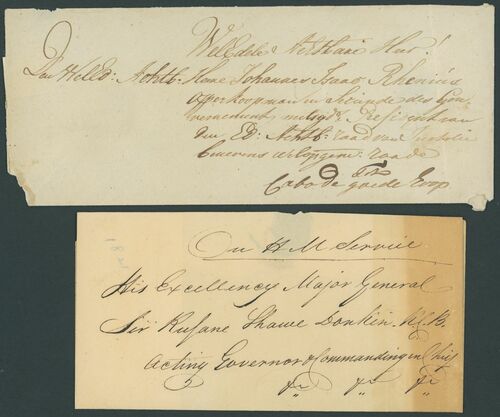 WelEdele & Achtbaare Heer!
Den WelEd: Achtb: Heere Johannes Isaac Rhenius
opperkoopman en Secunde des Gou-
vernements, mitsgds. President van
den Ed: Achtb: raad van Justitie
raade
Cabo de goede Hoop
On H M Service
His Excellency Major General
Sir Rufane Shawe Donkin. K.C.B.
Acting Governor & Commanding in Chief
&c &c &c
182